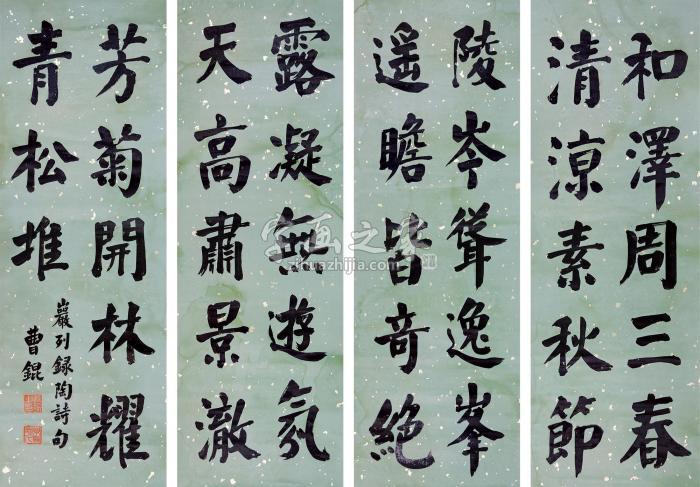 和澤周三春
清涼素秋節
陵岑聳逸峯
遥瞻皆奇絕
露凝無遊氛
天高肅景澈
芳菊開林耀
青松堆
巖列録陶詩句
曹錕
字画之家
zihuazhijia.com